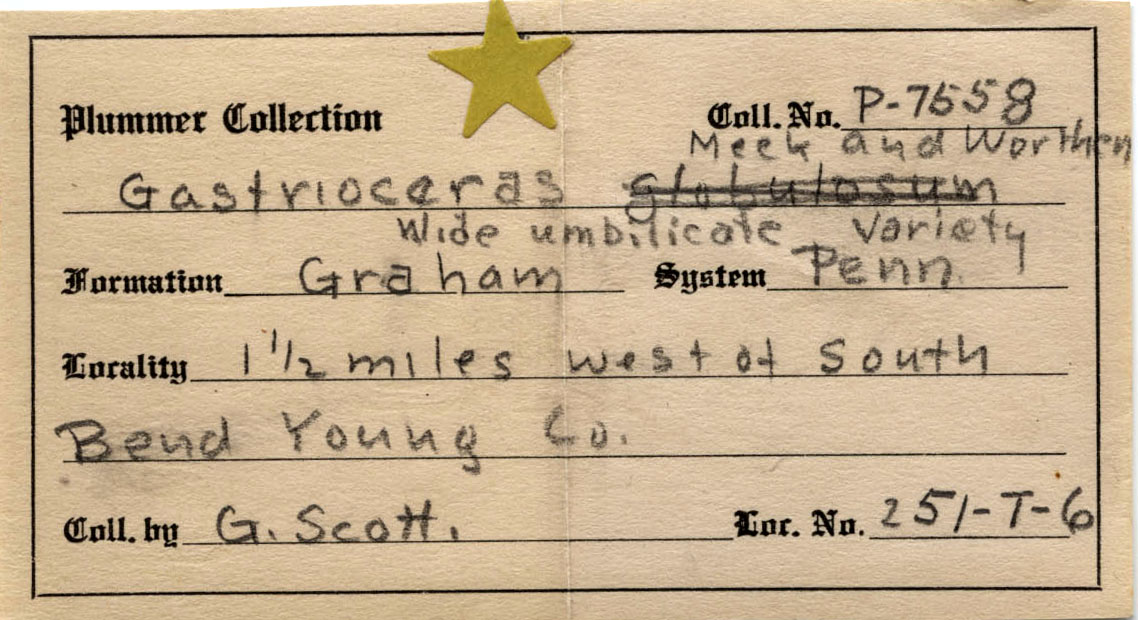 Plummer Collection Coll. No. P-7558
Meek and Worthen
Gastrioceras globulosum
Wide umbilicate variety
Formation Graham System Penn.
Locality 1 1/2 miles west of South
Bend Young Co.
Coll. by G. Scott. Loc. No. 251-T-6